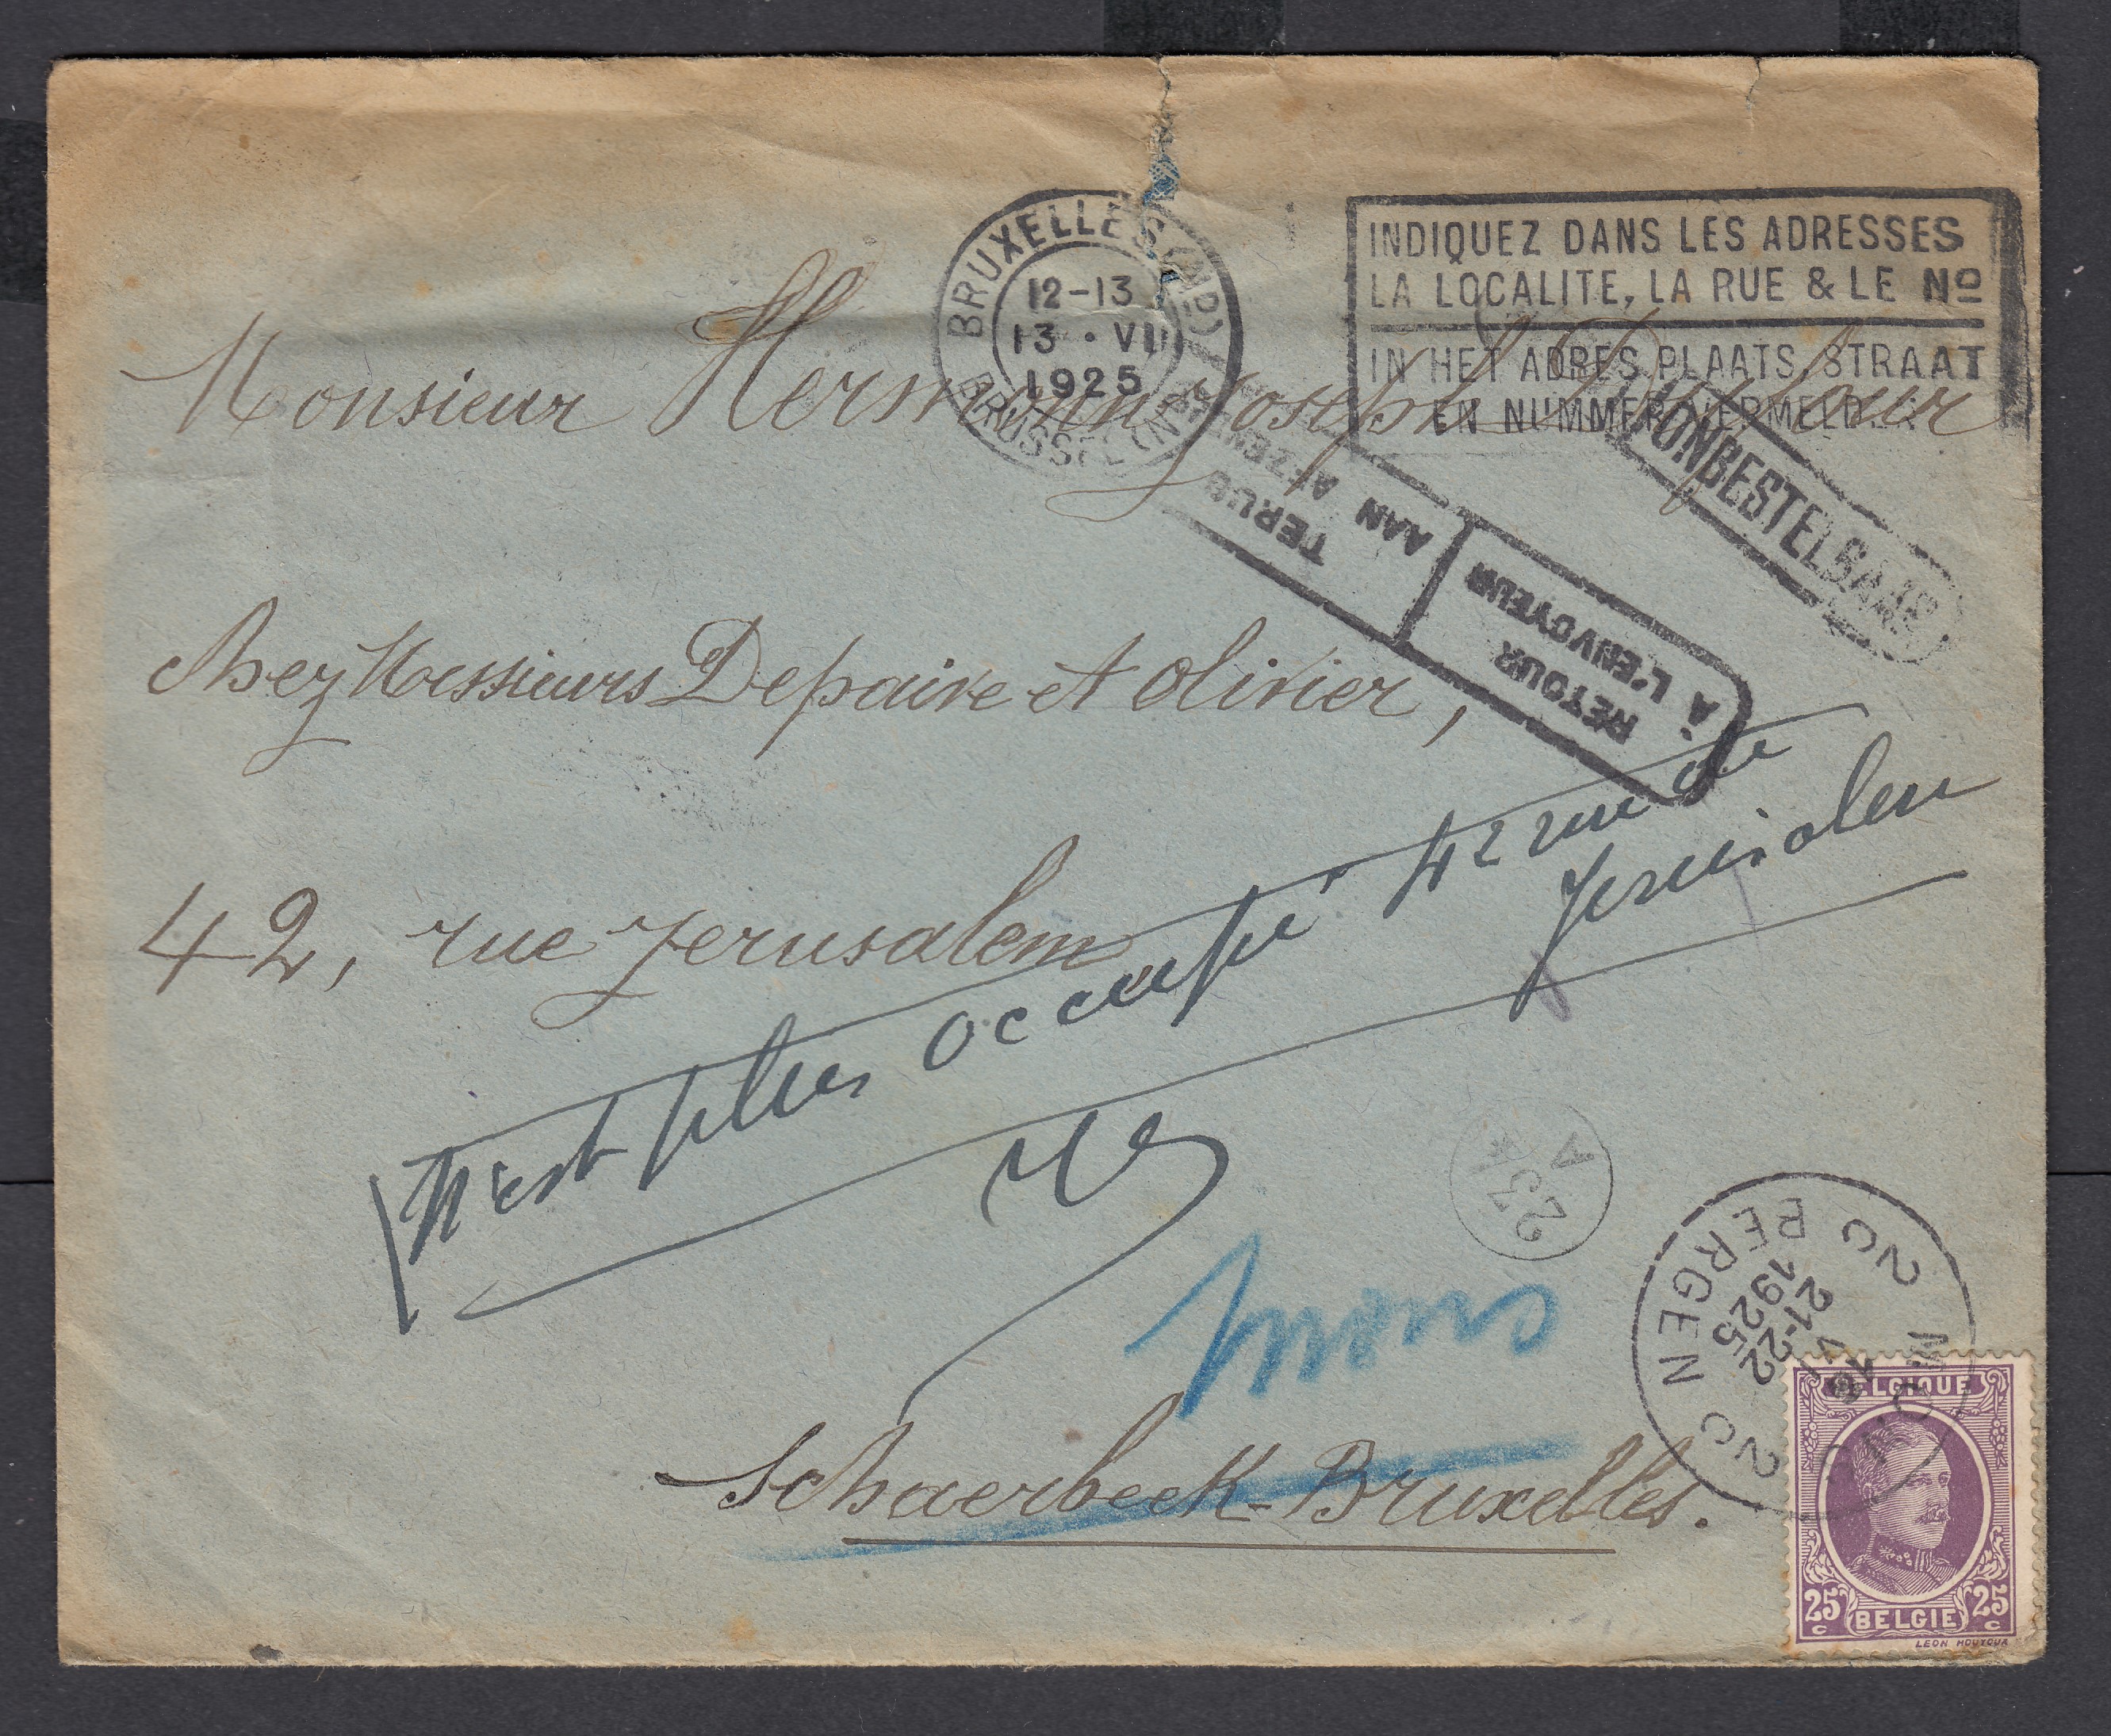 BRUXELLES (ND)
12-13
13 • VII
1925
BRUSSEL (N
INDIQUEZ DANS LES ADRESSES
LA LOCALITE, LA RUE & LE No
IN HET ADRES PLAATS, STRAAT
EN NUMMER VERMELDEN
Monsieur Hermann Joseph
ONBESTELBAAR
TERUG
AAN AFZENDER
RETOUR
À L'ENVOYEUR
chez Messieurs Depaire et Olivier,
42, rue Jerusalem
N'est plus occupé 42 rue de
Jerusalem
Mons
Schaerbeek-Bruxelles.
2C BERGEN 2C
21-22
1925
BELGIQUE
25 c BELGIE 25 c
LEON HOUYOUX